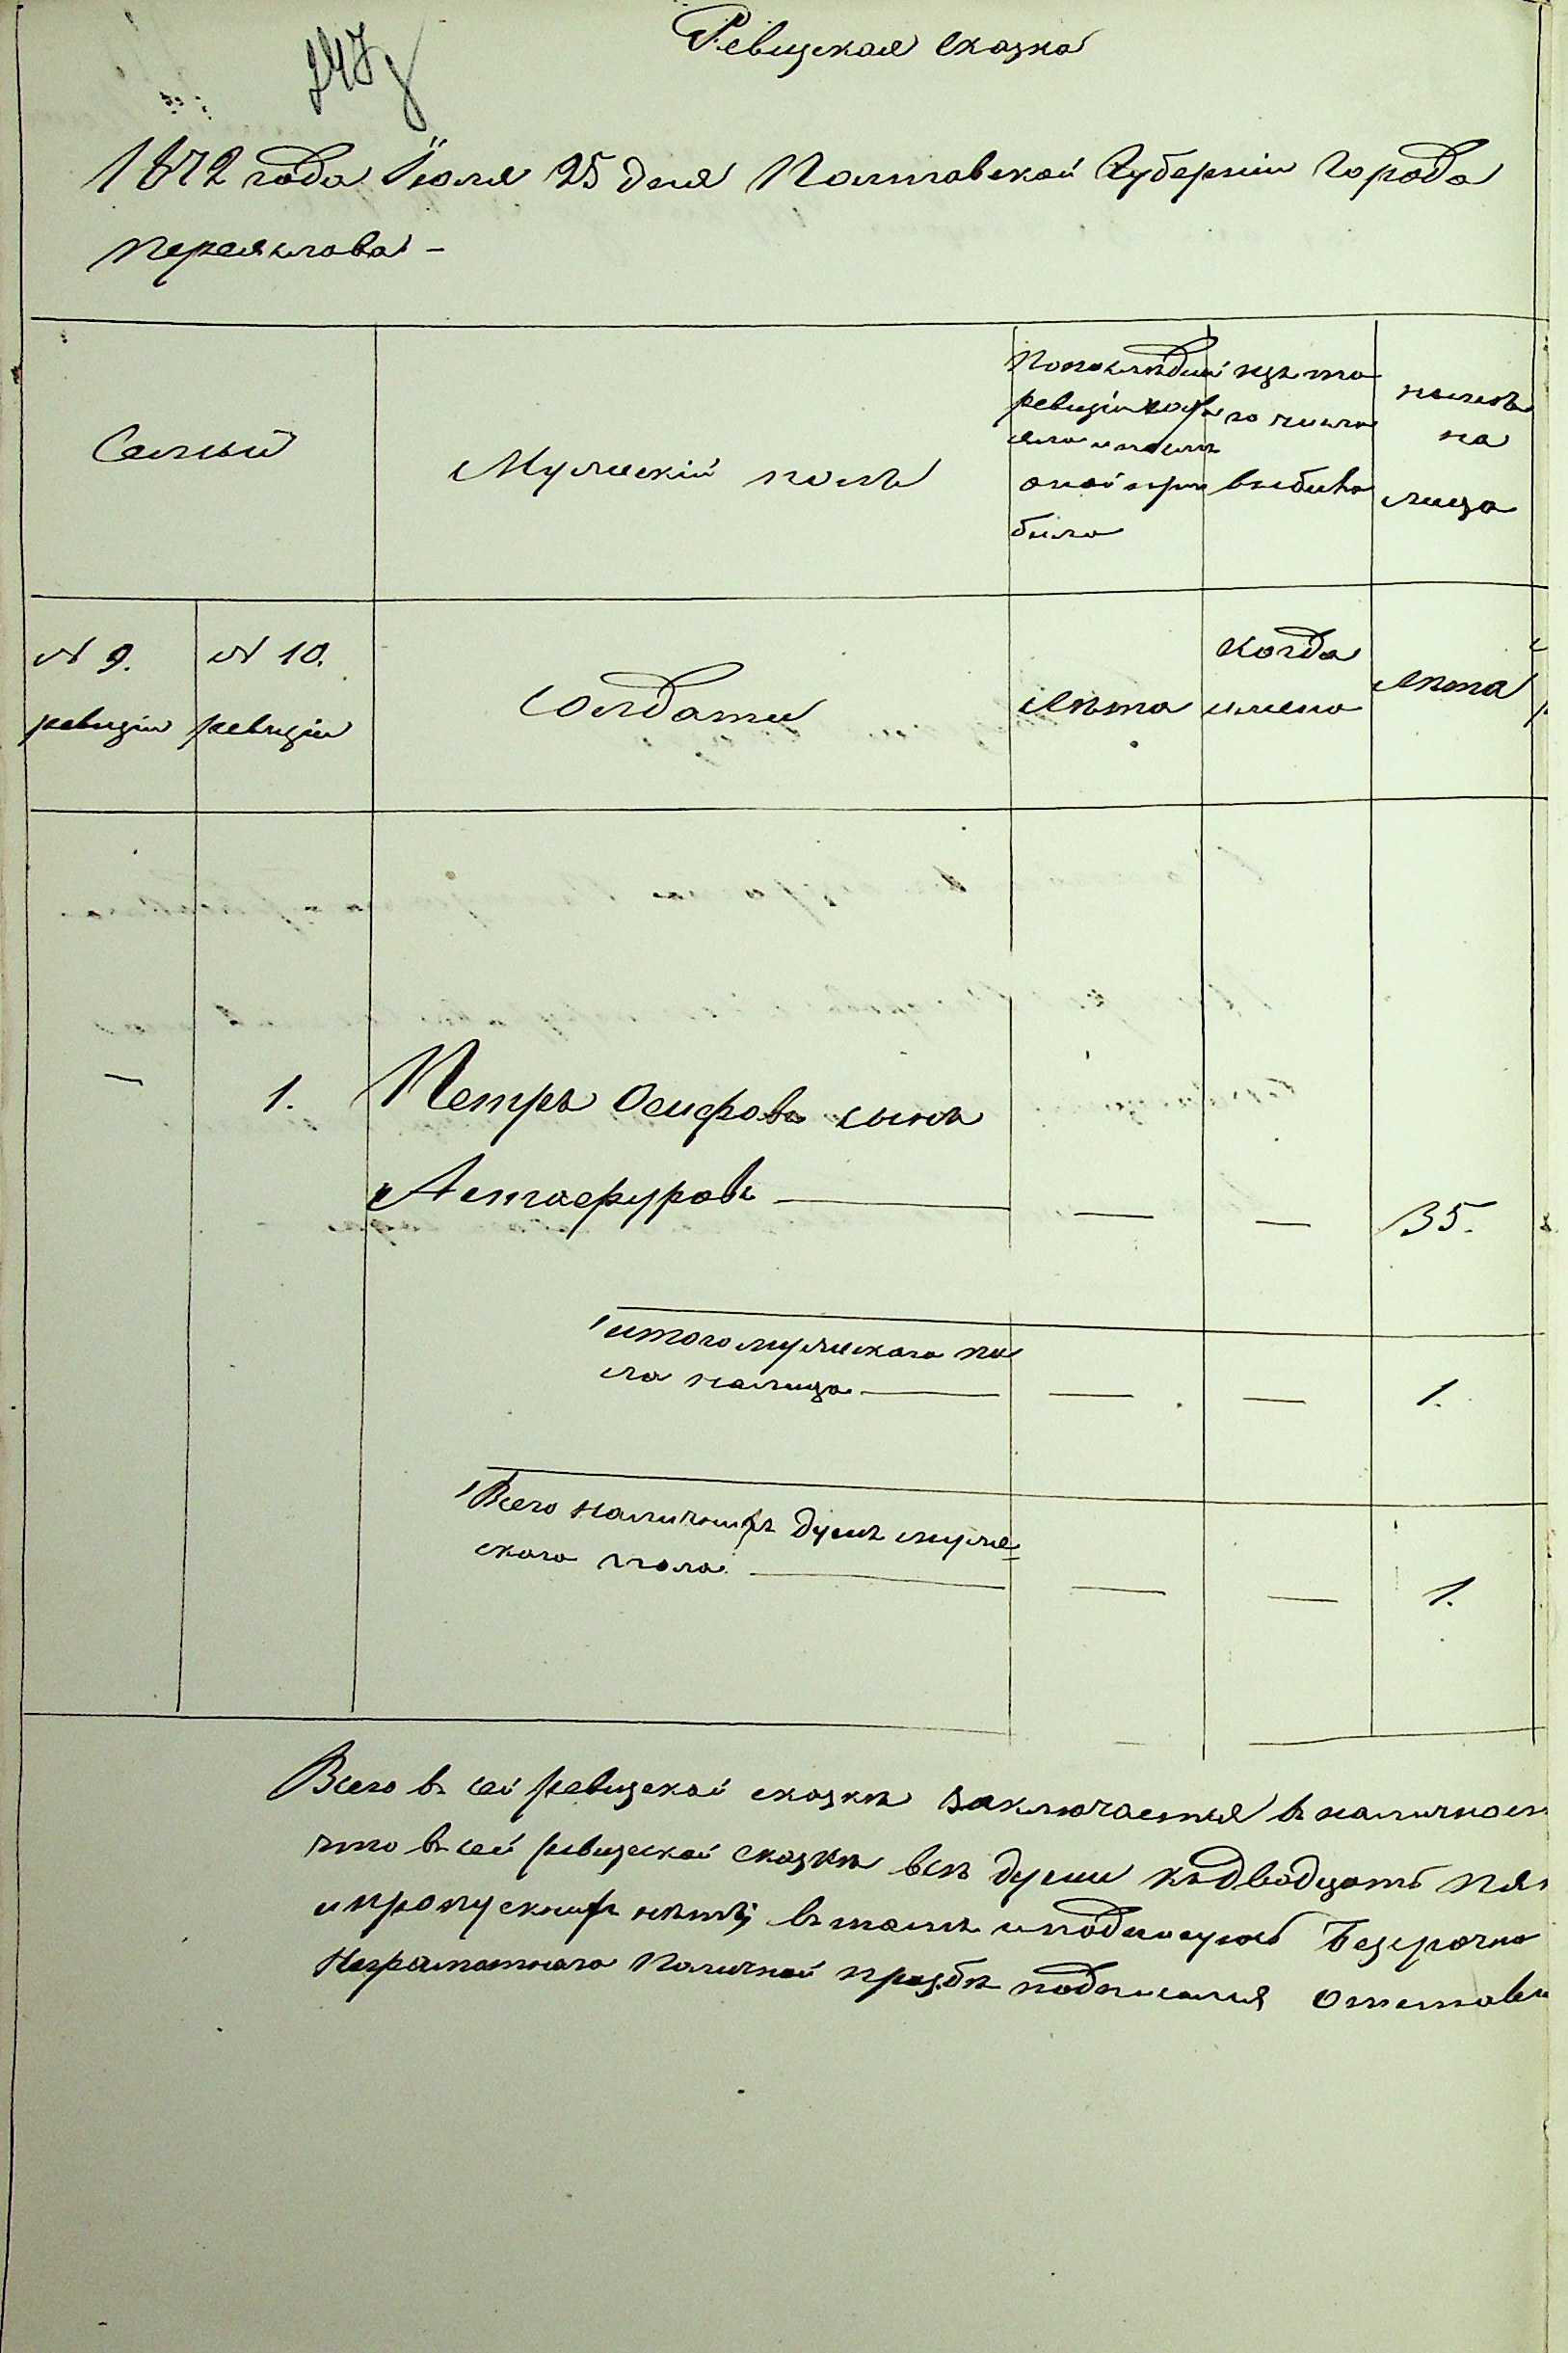 Ревизская сказка
247
1872 года Іюля 25 дня Полтавской Губерніи Города
Переяслова -
Семьи
Мужескій полъ
По последней
ревизіи состо
яло и после
оной при
было
изъ то
го числа
выбыло
ныне
на
лицо
N 9.
ревизіи
N 10.
ревизіи
Солдаты
лета
когда
имено
лета
— 1. Петръ Осиповъ сынъ
— — 35.
итого мужескаго по
ла налицо — — — 1.
Всего наличныхъ душъ муже
скаго пола — — — 1.
Всего въ сей ревизской сказкѣ заключается въ наличност
что въ сей ревизской сказкѣ все души къ двадцать пят
и пропускныхъ нѣтъ въ томъ и подписуюсь Безсрочно
Неграмотнаго по личной прозбѣ подписался Отставн